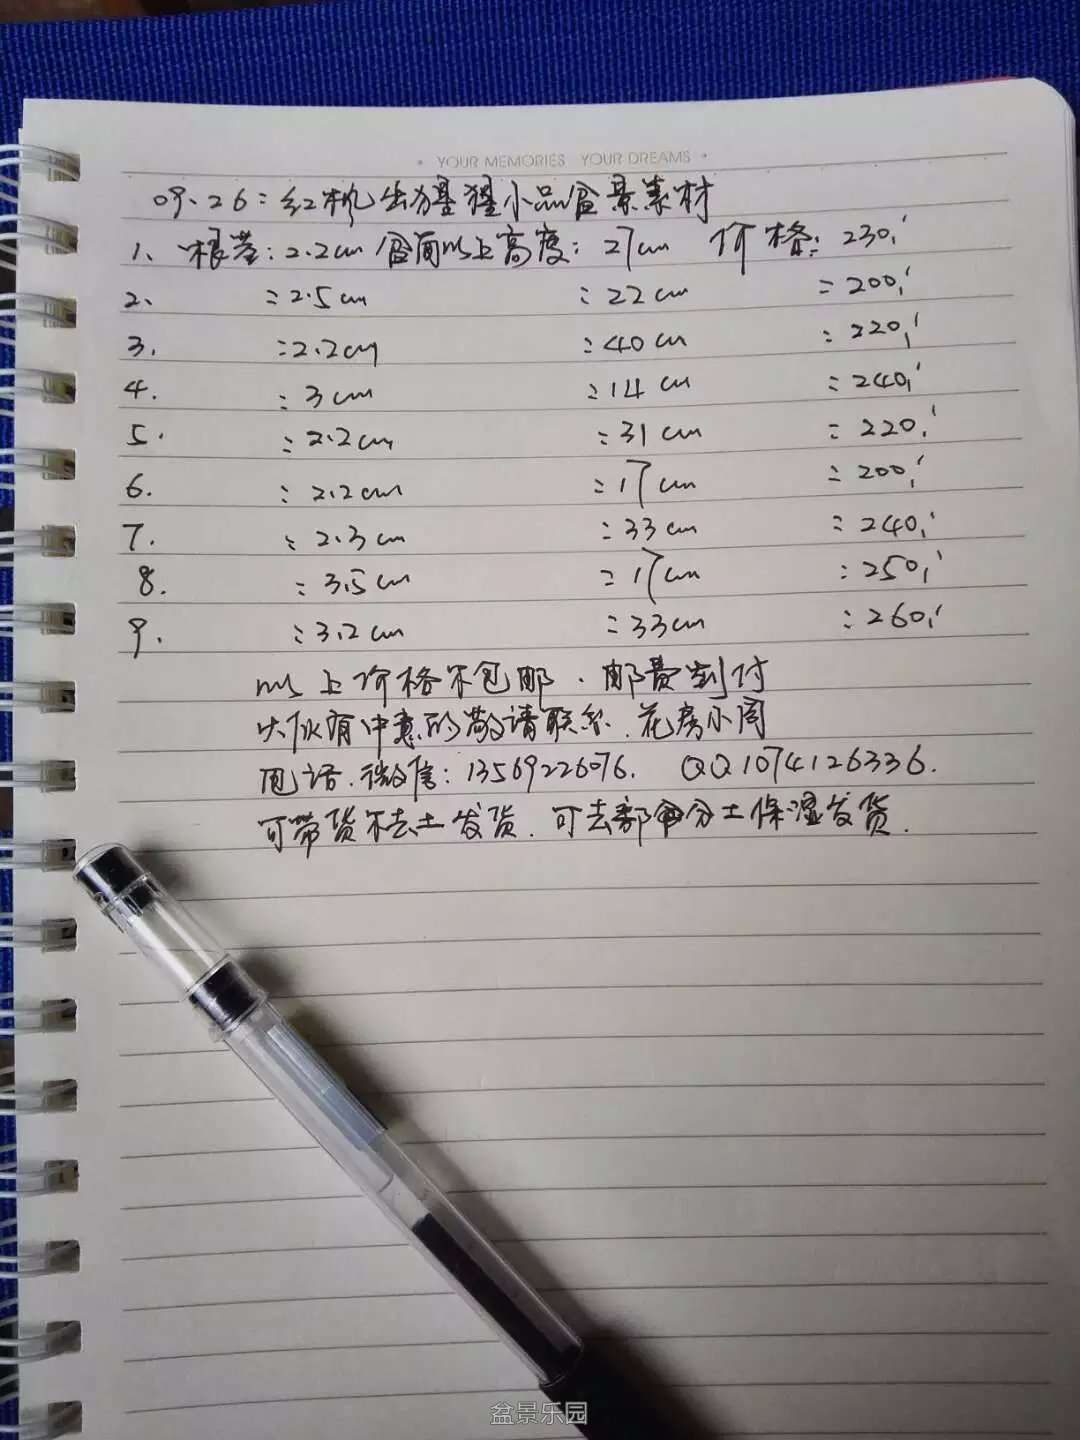 · YOUR MEMORIES YOUR DREAMS ·
09.26：红机出猩猩小品盆景素材
1、根茎：2.2cm 盆面以上高度：27cm 价格：230,
2、：2.5cm ：22cm ：200,
3. ：2.2cm ：40cm ：220,
4. ：3cm ：14cm ：240,
5. ：2.2cm ：31cm ：220,
6. ：2.2cm ：17cm ：200,
7. ：2.3cm ：33cm ：240,
8. ：3.5cm ：17cm ：250,
9. ：3.2cm ：33cm ：260,
以上价格不包邮．邮费到付
大伙有中意的敬请联系．花房小周
电话．微信：13569226076. QQ1074126336.
可带货不去土发货．可去部分土保湿发货．
盆景乐园